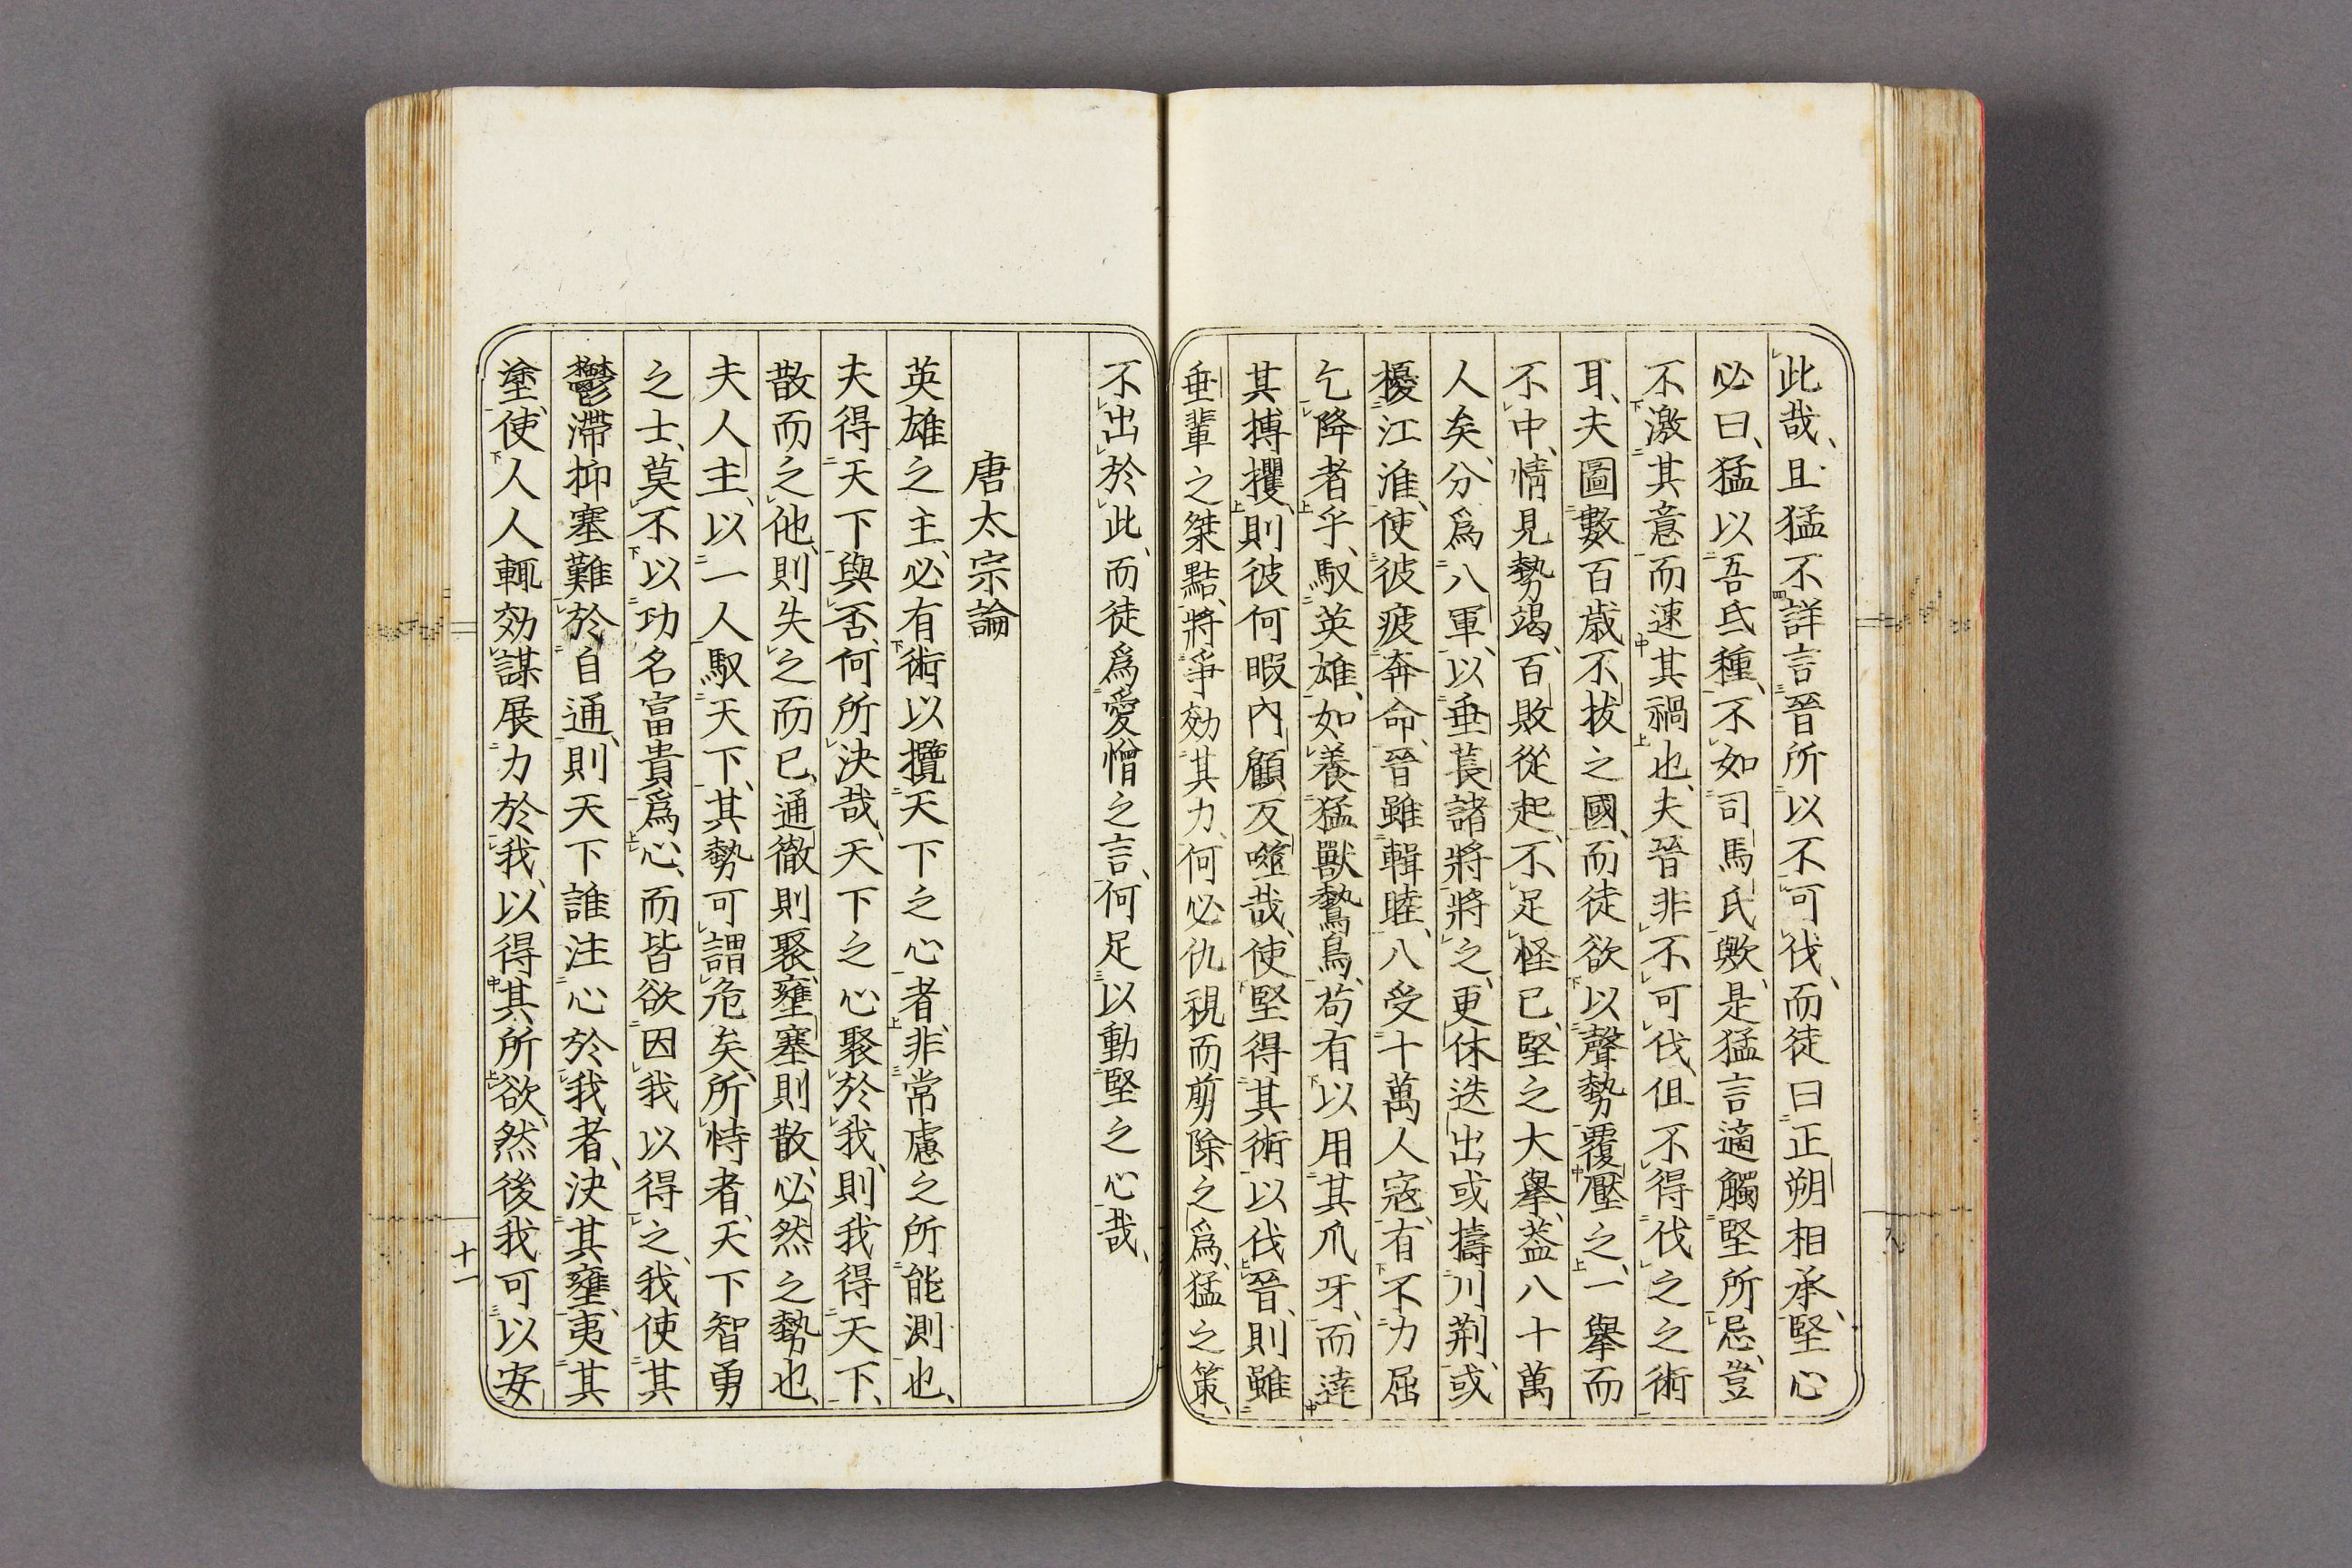 此哉、且猛不詳言晉所以不可伐、而徒曰正朔相承、堅心
必曰、猛以吾氐種、不如司馬氏歟、是猛言適觸堅所忌、豈
不激其意而速其禍也、夫晉非不可伐、伹不得伐之之術
耳、夫圖數百歳不拔之國、而徒欲以聲勢覆壓之、一擧而
不中、情見勢竭、百敗從起、不足怪已、堅之大擧、葢八十萬
人矣、分爲八軍、以垂萇諸將將之、更休迭出或擣川荆、或
擾江淮、使彼疲奔命、晉雖輯睦、八受十萬人寇、有不力屈
乞降者乎、馭英雄、如養猛獸鷙鳥、苟有以用其爪牙、而達
其搏攫、則彼何暇內顧反噬哉、使堅得其術以伐晉、則雖
垂輩之桀黠、將爭効其力、何必仇視而剪除之爲、猛之策、
不出於此、而徒爲愛憎之言、何足以動堅之心哉、
唐太宗論
英雄之主、必有術以攬天下之心者、非常慮之所能測也、
夫得天下與否、何所決哉、天下之心聚於我、則我得天下、
散而之他、則失之而已、通徹則聚、壅塞則散、必然之勢也、
夫人主、以一人馭天下、其勢可謂危矣、所恃者、天下智勇
之士、莫不以功名富貴爲心、而皆欲因我以得之、我使其
鬱滯抑塞難於自通、則天下誰注心於我者、決其壅、夷其
塗、使人人輒効謀展力於我、以得其所欲、然後我可以安
十一